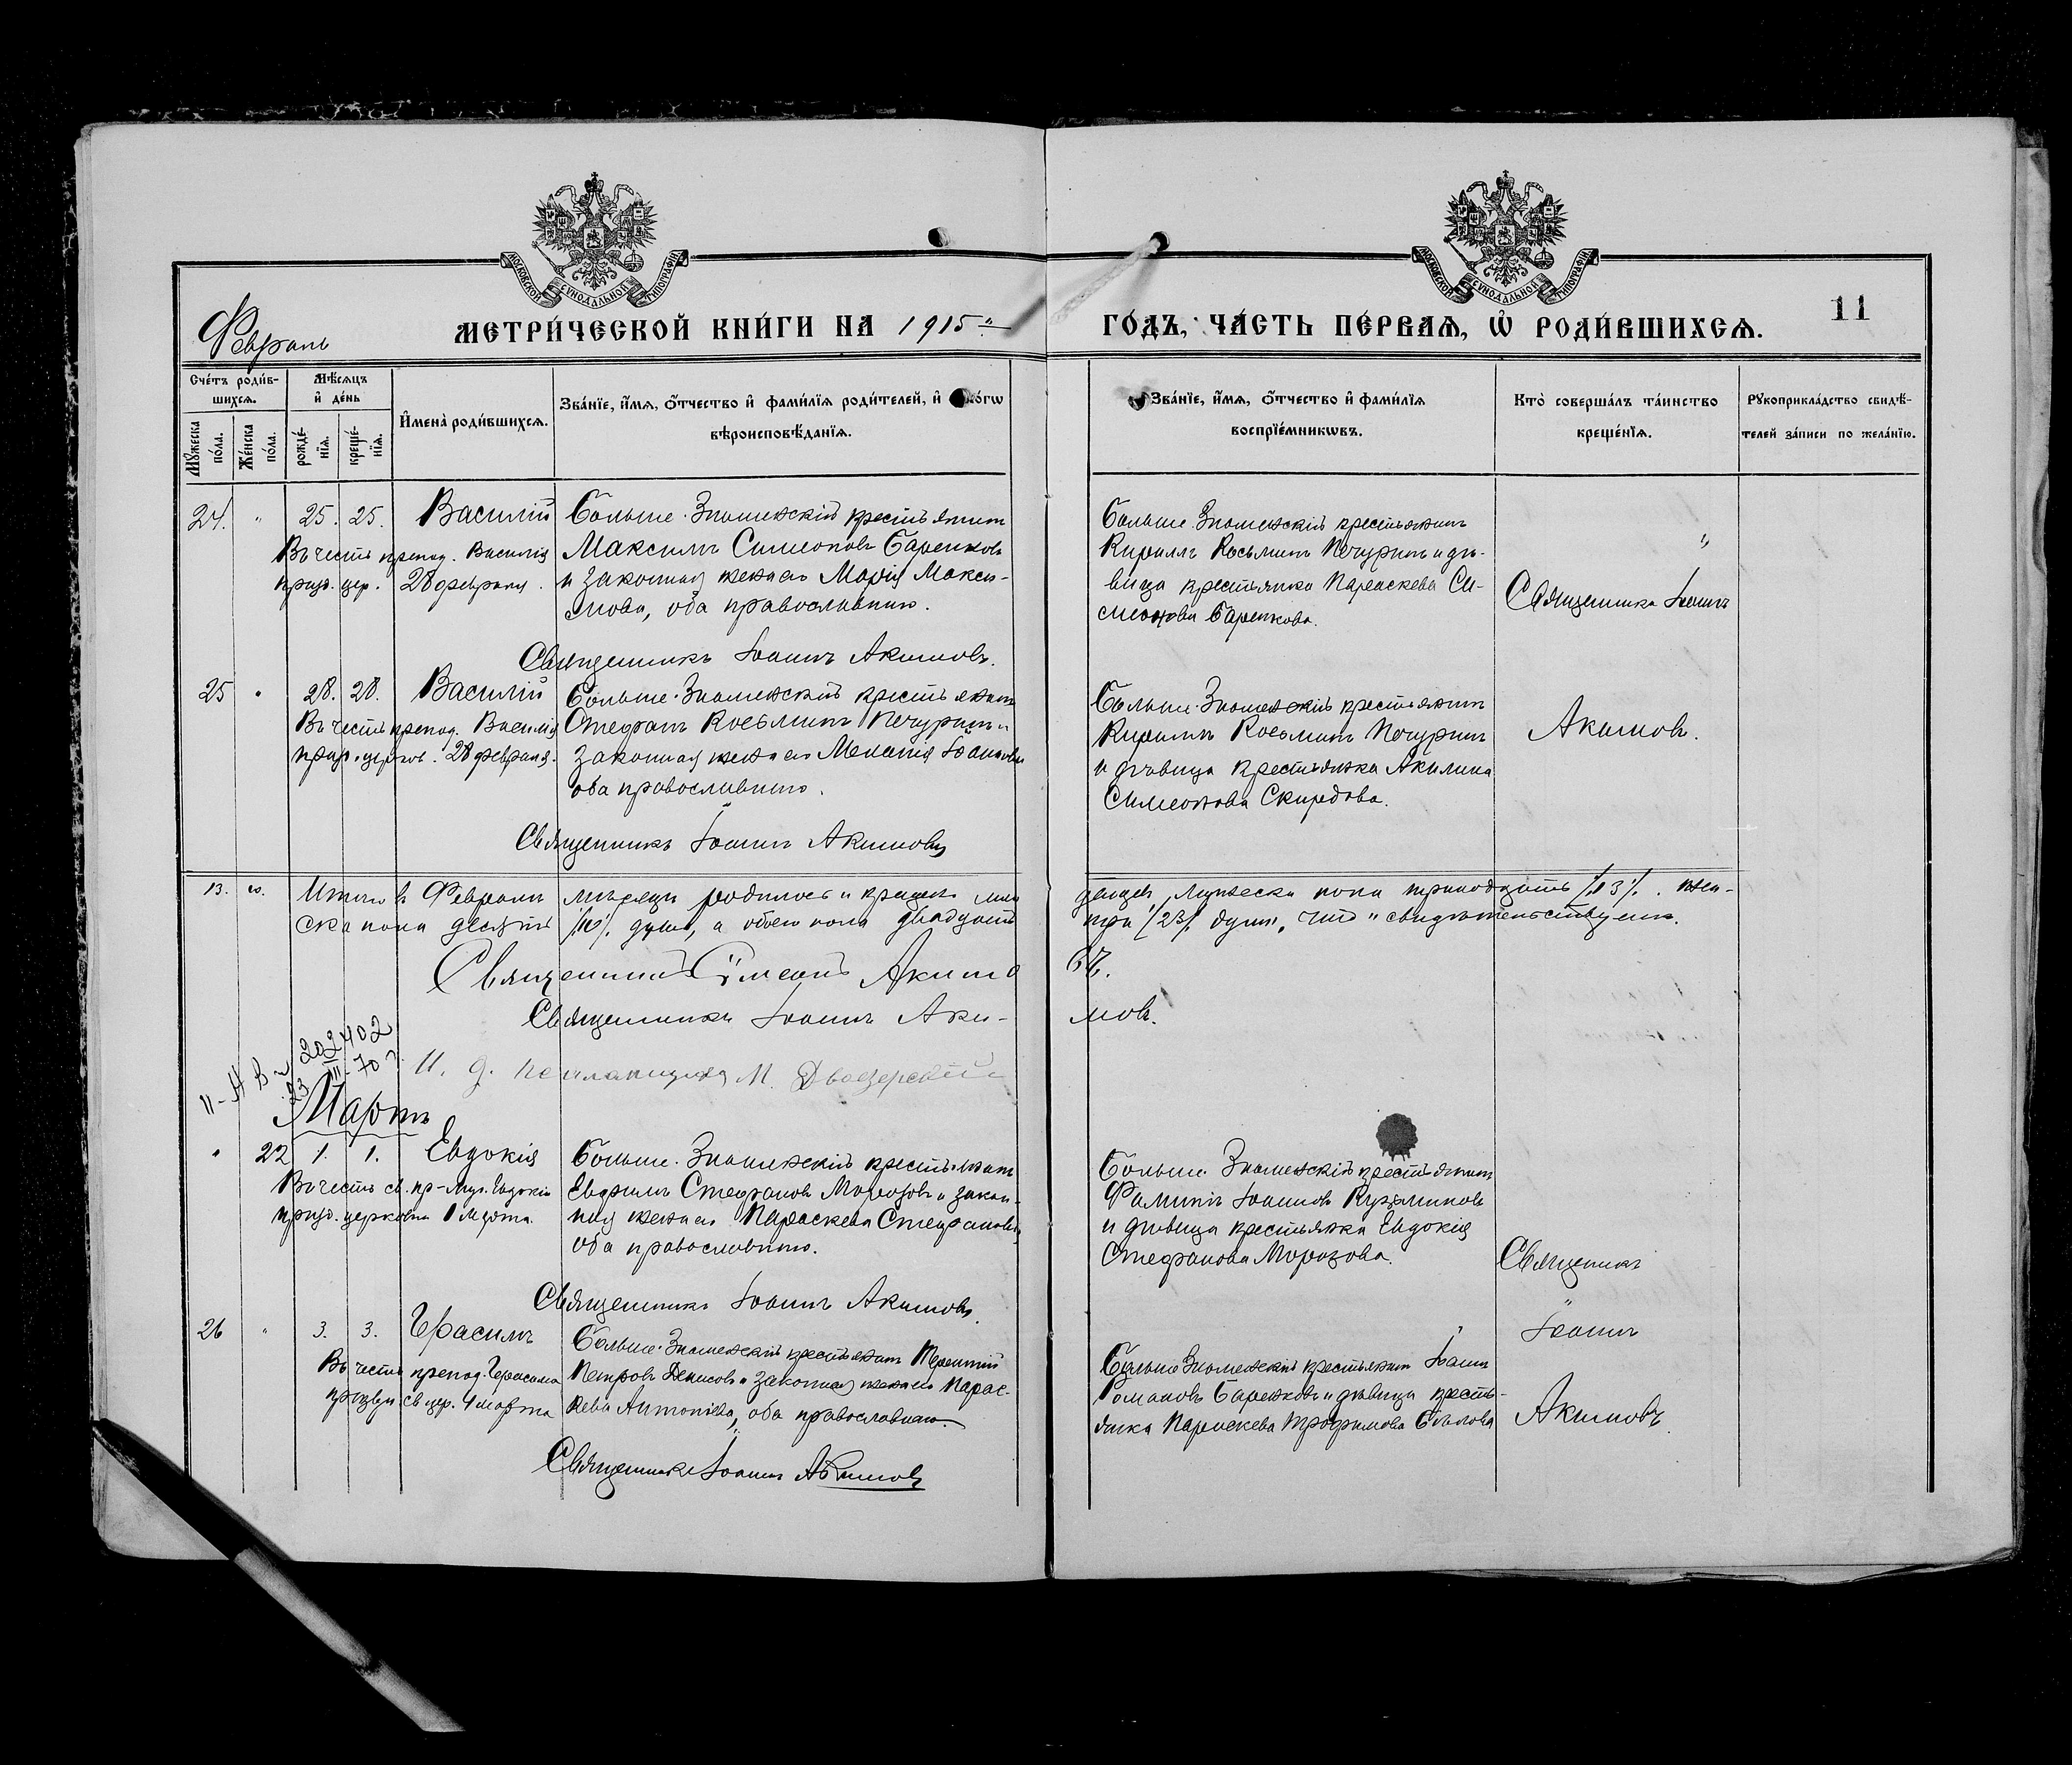 МОСКОВСКОЙ СѴНОДАЛЬНОЙ ТИПОГРАФІИ
МОСКОВСКОЙ СѴНОДАЛЬНОЙ ТИПОГРАФІИ
11
Февраль
МЕТРИ́ЧЕСКОЙ КНИ́ГИ НА 1915
ГО́ДЪ, ЧА́СТЬ ПЕ́РВАѦ, Ѡ҆ РОДИ́ВШИХСѦ.
Сче́тъ роди́в-
шихсѧ.
Мꙋ́жеска по́ла.
Же́нска по́ла.
Мѣ́сѧцъ
и҆ де́нь
рожде́-
нїѧ.
креще́-
нїѧ.
И҆мена̀ роди́вшихсѧ.
Зва́нїе, и҆́мѧ, ѻ҆́тчество и҆ фами́лїѧ роди́телей, и҆ ко́гѡ
вѣроисповѣ́данїѧ.
Зва́нїе, и҆́мѧ, ѻ҆́тчество и҆ фами́лїѧ
воспрїе́мникѡвъ.
Кто̀ соверша́лъ та́инство
креще́нїѧ.
Рꙋкоприкла́дство свидѣ́-
телей за́писи по жела́нїю.
24. " 25. 25. Василій
Въ честь препод. Василія
празд. цер. 28 февраля.
Больше-Знаменскій крестьянинъ
Максимъ Симеоновъ Баренковъ
и законная жена его Марія Макси-
мова, оба православные.
Священникъ Іоаннъ Акимовъ.
Больше-Знаменскій крестьянинъ
Кириллъ Косьминъ Печуринъ и дѣ-
вица крестьянка Параскева Си-
меонова Баренкова.
Священникъ Іоаннъ
25 " 28. 28. Василій
Въ честь препод. Василія
празд. церков. 28 февраля.
Больше-Знаменскій крестьянинъ
Стефанъ Косьминъ Печуринъ и
законная жена его Меланія Іоаннова
оба православные.
Священникъ Іоаннъ Акимовъ
Больше-Знаменскій крестьянинъ
Кириллъ Косьминъ Печуринъ
и дѣвица крестьянка Акилина
Симеонова Скиредова.
Акимовъ.
13. 10. Итого въ Февралѣ мѣсяцѣ родилось и крещено мла
денцев, мужеска пола тринадцать /13/. жен-
ска пола десять /10/. душъ, а обоего пола двадцать
три /23/ душъ, что и свидѣтельствуемъ.
Священникъ Сѵмеонъ Акимо
въ.
Священникъ Іоаннъ Аки-
мовъ.
И. д. псаломщика М. Двоезерскій
II-АВ № 202402
23 III-70 г.
Мартъ
" 22 1. 1. Евдокія
Въ честь св. пр-муч. Евдокіи
празд. церковію 1 марта.
Больше-Знаменскій крестьянинъ
Евфимъ Стефановъ Морозовъ и закон-
ная жена его Параскева Стефанова,
оба православные.
Священникъ Іоаннъ Акимовъ.
Больше-Знаменскій крестьянинъ
Іоанновъ
и дѣвица крестьянка Евдокія
Стефанова Морозова.
Священникъ
26 " 3. 3. Герасимъ
Въ честь препод. Герасима
празднуем. св. цер. 4 марта
Больше-Знаменскій крестьянинъ Терентій
Петровъ Денисовъ и законная жена его Парас-
кева Антоніева, оба православные.
Священникъ Іоаннъ Акимовъ
Больше-Знаменскій крестьянинъ Іоаннъ
Романовъ Баренковъ и дѣвица кресть-
янка Параскева Трофимова Бѣлова
Іоаннъ
Акимовъ.